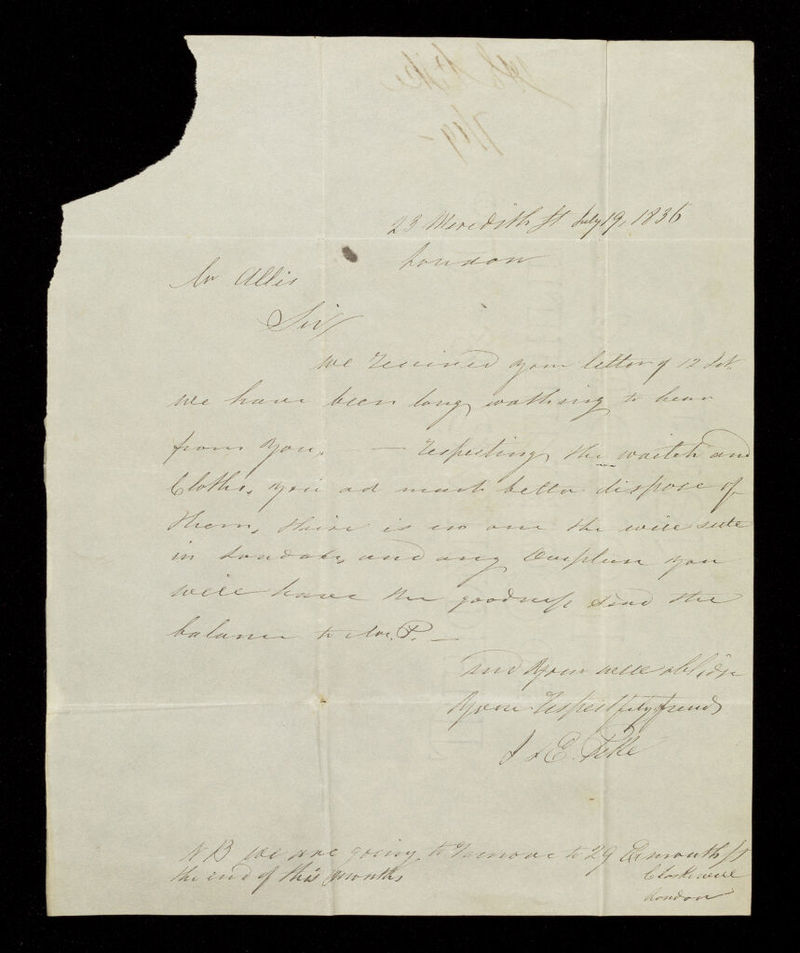 23 Meredith St July 19, 1836
London
Mr Allis
Sir
We received your letter of 12
we have been long wathing to hear
from you. — respecting the waitch and
Cloths, you ad much better dispose of
them, thire is no one the will
in London, and any you
will have the goodness send the
balance to Mr. P. —
and you will
Your friends
J & E. Pike
N B We are going to remove to 29 Exmouth St
the end of this month,
London